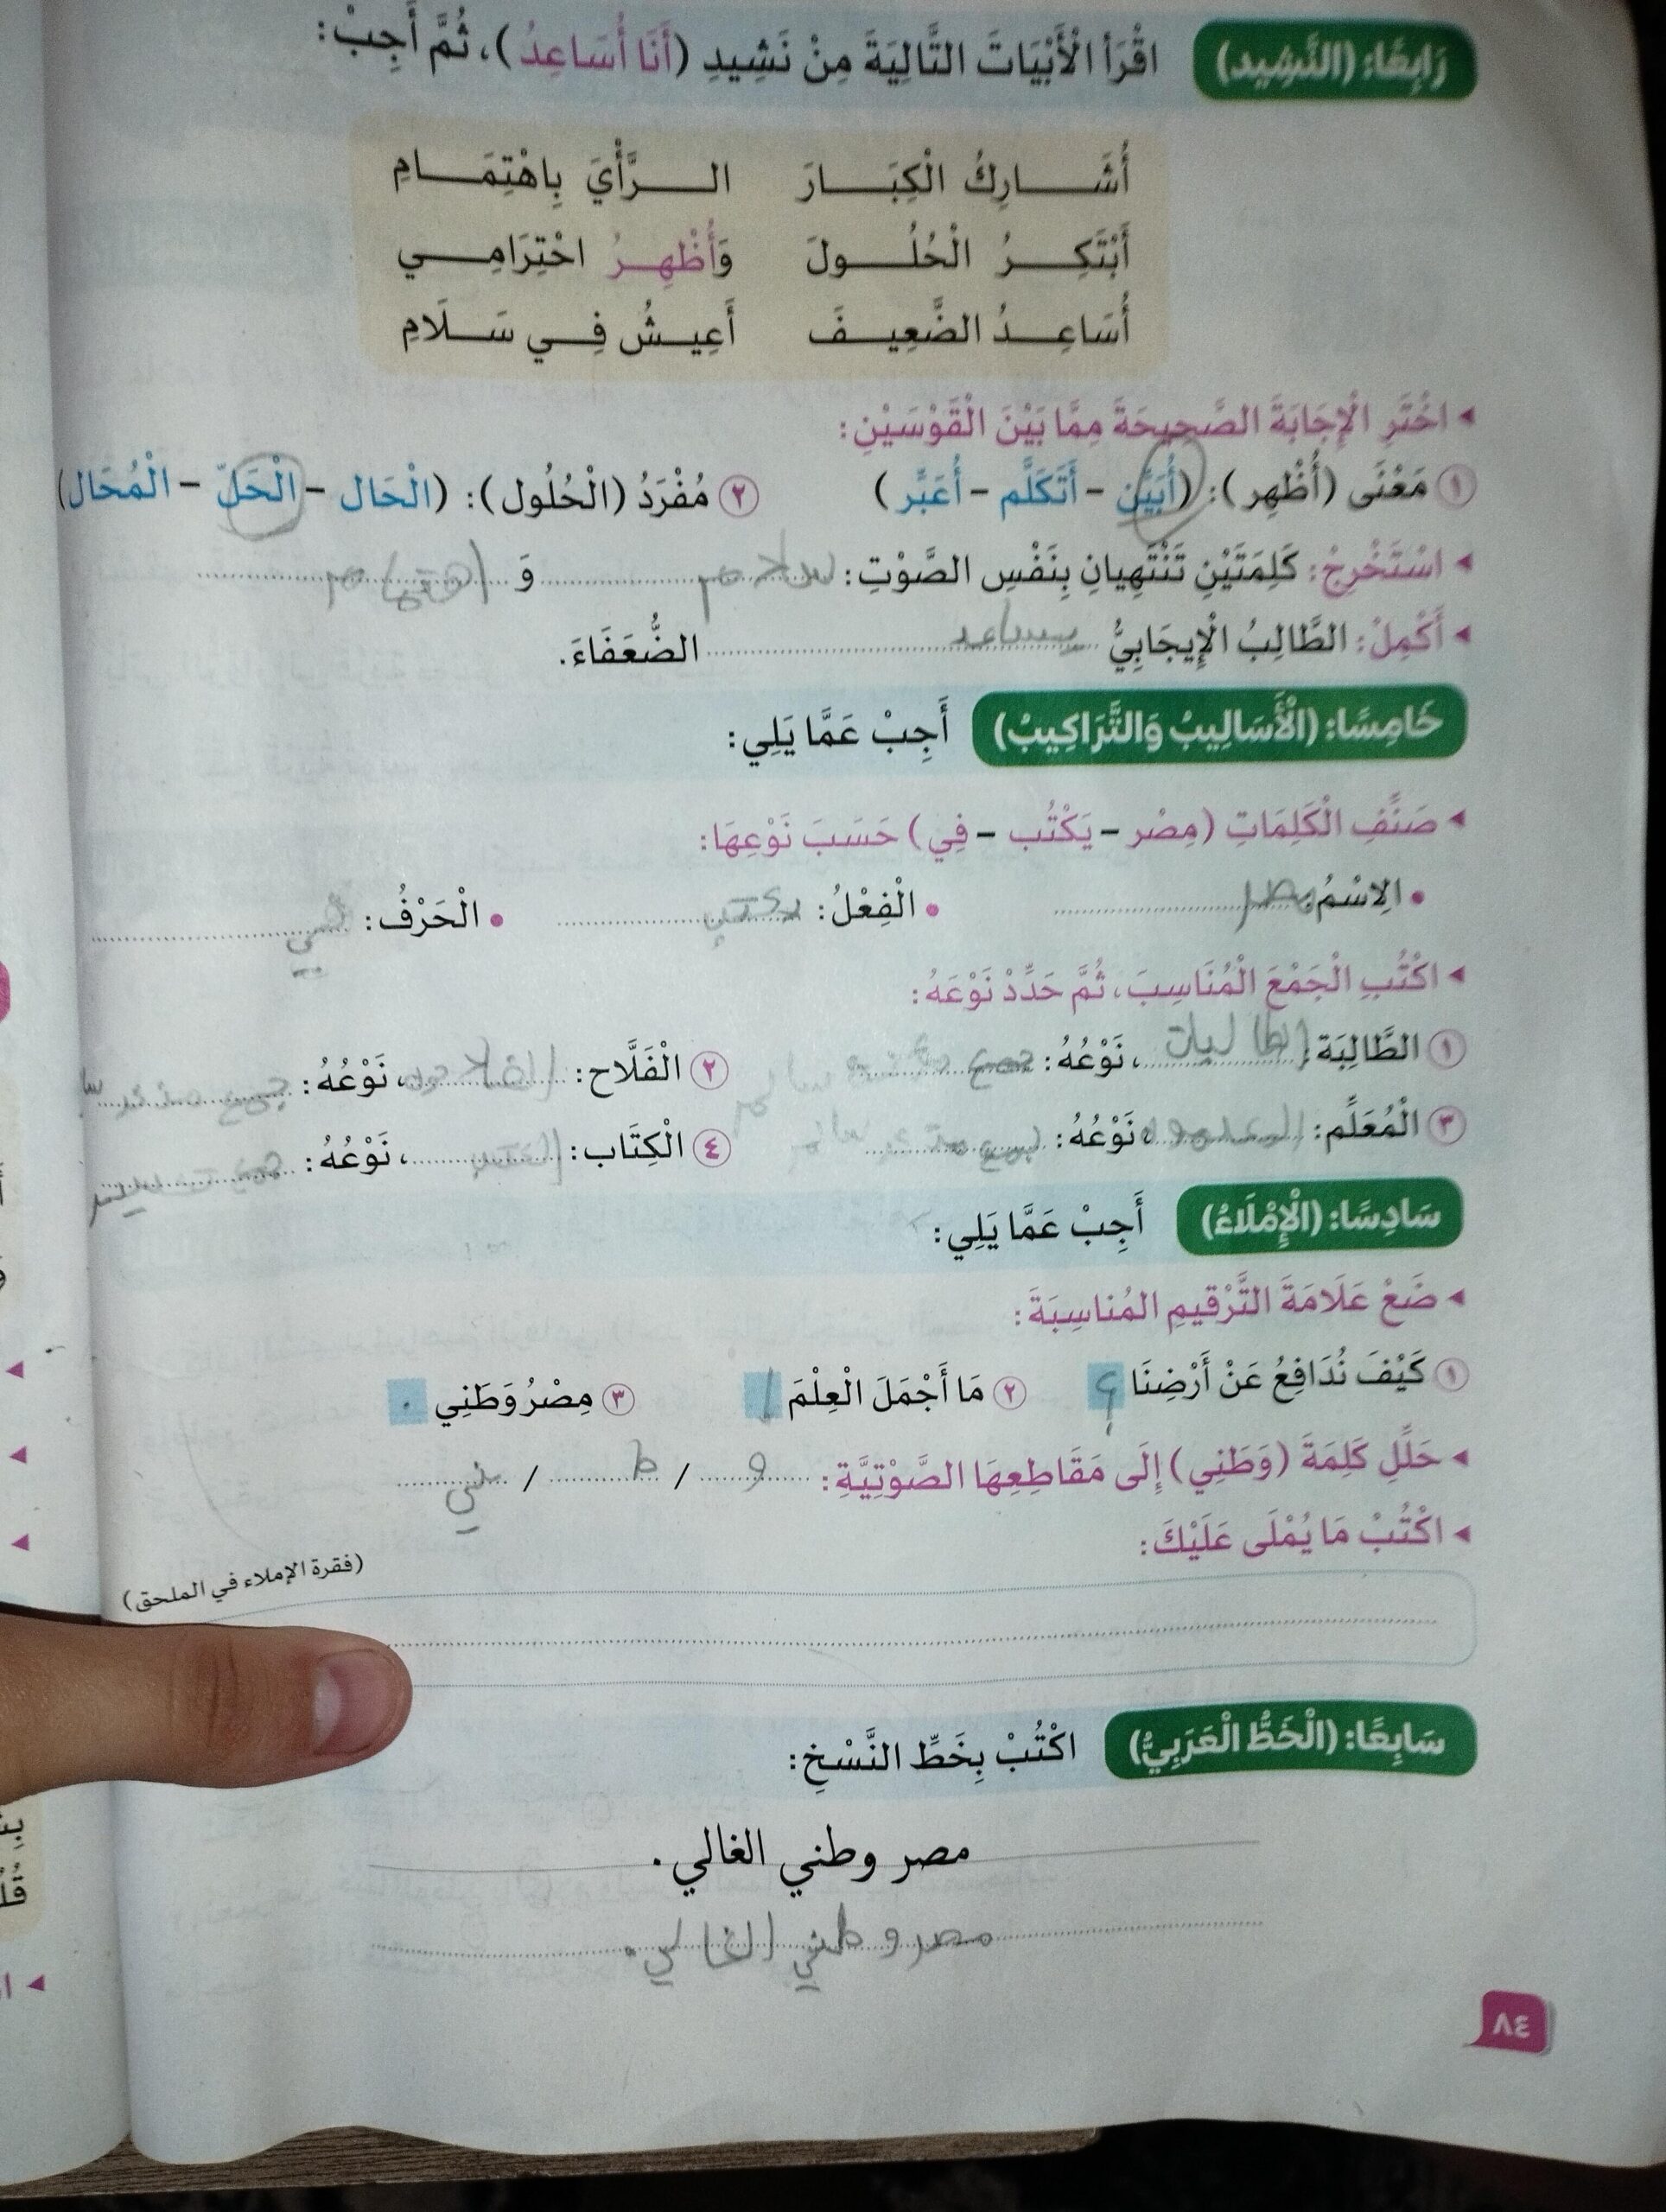 رَابِعًا: (النَّشِيد) اقْرَأِ الْأَبْيَاتَ التَّالِيَةَ مِنْ نَشِيدِ (أَنَا أُسَاعِدُ)، ثُمَّ أَجِبْ:
أُشَـــارِكُ الْكِبَـــارَ الـــرَّأْيَ بِاهْتِمَـــامِ
أَبْتَكِـــرُ الْحُلُـــولَ وَأُظْهِـــرُ احْتِرَامِـــي
أُسَاعِـــدُ الضَّعِيـــفَ أَعِيـــشُ فِـــي سَـــلَامِ
◂ اخْتَرِ الْإِجَابَةَ الصَّحِيحَةَ مِمَّا بَيْنَ الْقَوْسَيْنِ:
١ مَعْنَى (أُظْهِر): (أُبَيِّن – أَتَكَلَّم – أُعَبِّر) ٢ مُفْرَدُ (الْحُلُول): (الْحَال – الْحَلّ – الْمُحَال)
◂ اسْتَخْرِجْ: كَلِمَتَيْنِ تَنْتَهِيانِ بِنَفْسِ الصَّوْتِ: سلام وَ اهتمام
◂ أَكْمِلْ: الطَّالِبُ الْإِيجَابِيُّ يساعد الضُّعَفَاءَ.
خَامِسًا: (الْأَسَالِيبُ وَالتَّرَاكِيبُ) أَجِبْ عَمَّا يَلِي:
◂ صَنِّفِ الْكَلِمَاتِ (مِصْر – يَكْتُب – فِي) حَسَبَ نَوْعِهَا:
• الِاسْمُ: مصر • الْفِعْلُ: يكتب • الْحَرْفُ: في
◂ اكْتُبِ الْجَمْعَ الْمُنَاسِبَ، ثُمَّ حَدِّدْ نَوْعَهُ:
١ الطَّالِبَة: الطالبات، نَوْعُهُ: جمع مؤنث سالم ٢ الْفَلَّاح: الفلاحون، نَوْعُهُ: جمع مذكر
٣ الْمُعَلِّم: ، نَوْعُهُ: جمع ٤ الْكِتَاب: الكتب، نَوْعُهُ: جمع تكسير
سَادِسًا: (الْإِمْلَاءُ) أَجِبْ عَمَّا يَلِي:
◂ ضَعْ عَلَامَةَ التَّرْقِيمِ المُناسِبَةَ:
١ كَيْفَ نُدَافِعُ عَنْ أَرْضِنَا ؟ ٢ مَا أَجْمَلَ الْعِلْمَ ! ٣ مِصْرُ وَطَنِي .
◂ حَلِّلِ كَلِمَةَ (وَطَنِي) إِلَى مَقَاطِعِهَا الصَّوْتِيَّةِ: و / ط / ني
◂ اكْتُبْ مَا يُمْلَى عَلَيْكَ:
(فقرة الإملاء في الملحق)
سَابِعًا: (الْخَطُّ الْعَرَبِيُّ) اكْتُبْ بِخَطِّ النَّسْخِ:
مصر وطني الغالي .
مصر وطني الغالي .
٨٤